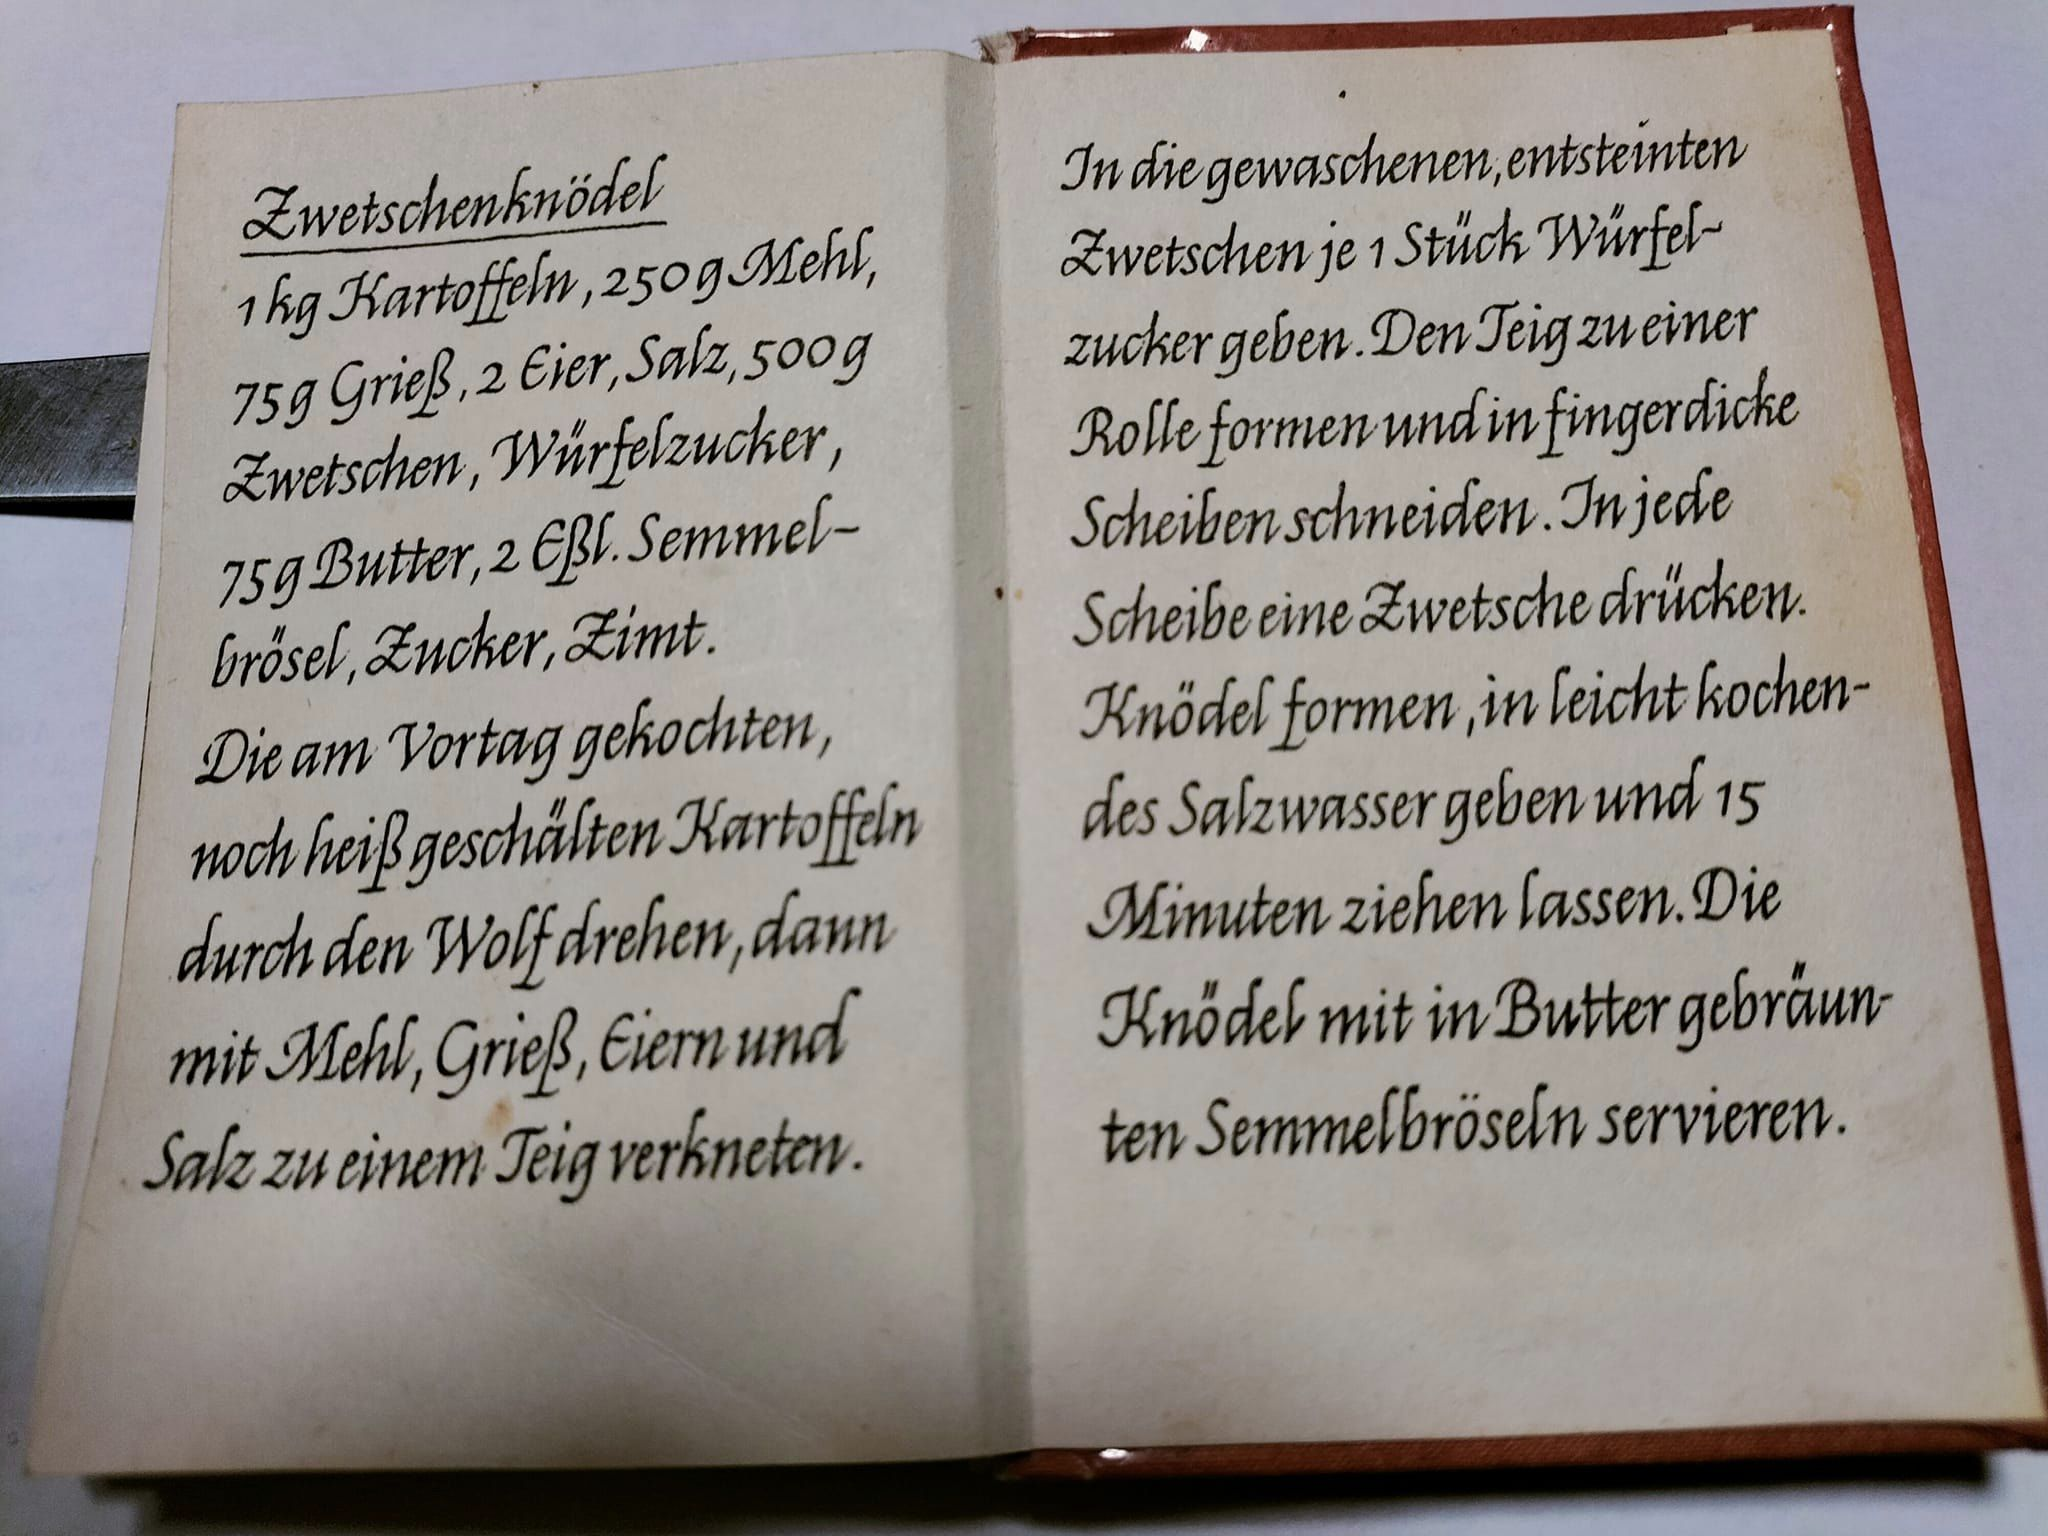 Zwetschenknödel
1 kg Kartoffeln, 250 g Mehl,
75 g Grieß, 2 Eier, Salz, 500 g
Zwetschen, Würfelzucker,
75 g Butter, 2 Eßl. Semmel-
brösel, Zucker, Zimt.
Die am Vortag gekochten,
noch heiß geschälten Kartoffeln
durch den Wolf drehen, dann
mit Mehl, Grieß, Eiern und
Salz zu einem Teig verkneten.
In die gewaschenen, entsteinten
Zwetschen je 1 Stück Würfel-
zucker geben. Den Teig zu einer
Rolle formen und in fingerdicke
Scheiben schneiden. In jede
Scheibe eine Zwetsche drücken.
Knödel formen, in leicht kochen-
des Salzwasser geben und 15
Minuten ziehen lassen. Die
Knödel mit in Butter gebräun-
ten Semmelbröseln servieren.